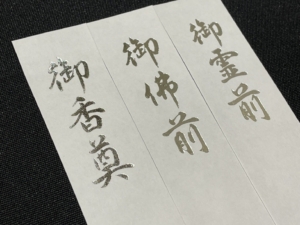 御霊前
御佛前
御香奠